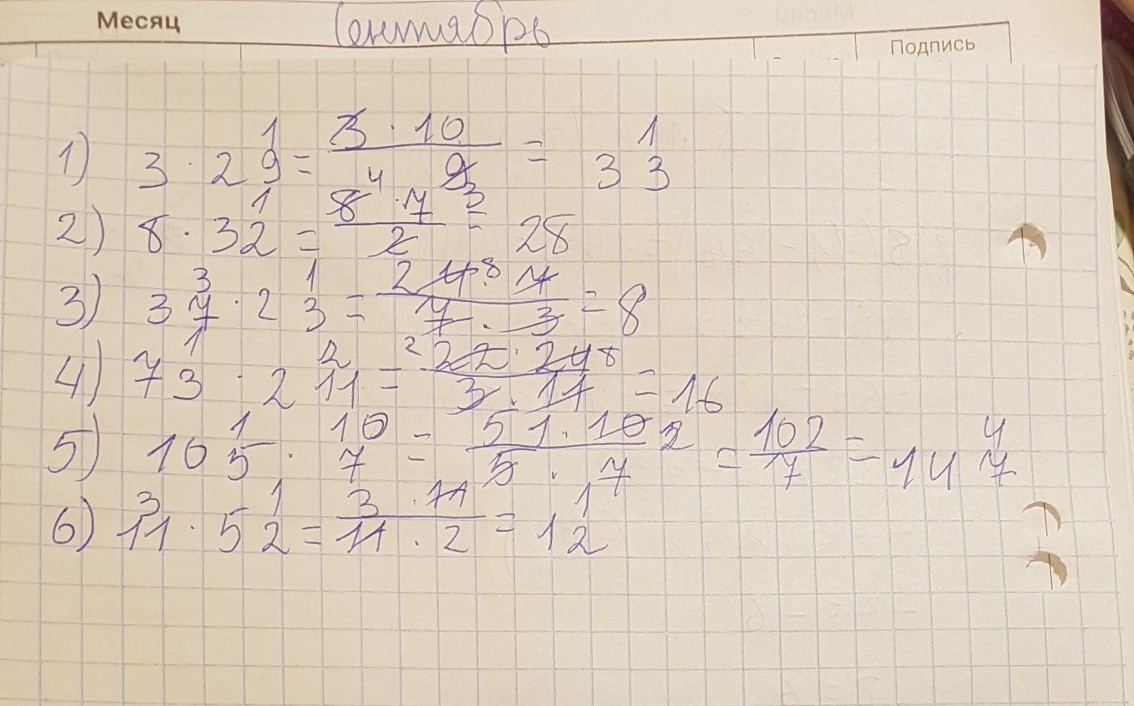 Месяц Сентябрь
Подпись
1) 3 · 2 1/9 = 3 · 10 / 9 3 = 3 1/3
2) 8 · 3 1/2 = 8 4 · 7 / 2 = 28
3) 3 3/7 · 2 1/3 = 24 8 · 7 / 7 · 3 = 8
4) 7 1/3 · 2 2/11 = 2 22 · 24 8 / 3 · 11 = 16
5) 10 1/5 · 10/7 = 51 · 10 2 / 5 · 7 = 102/7 = 14 4/7
6) 3/11 · 5 1/2 = 3 · 11 / 11 · 2 = 1 1/2